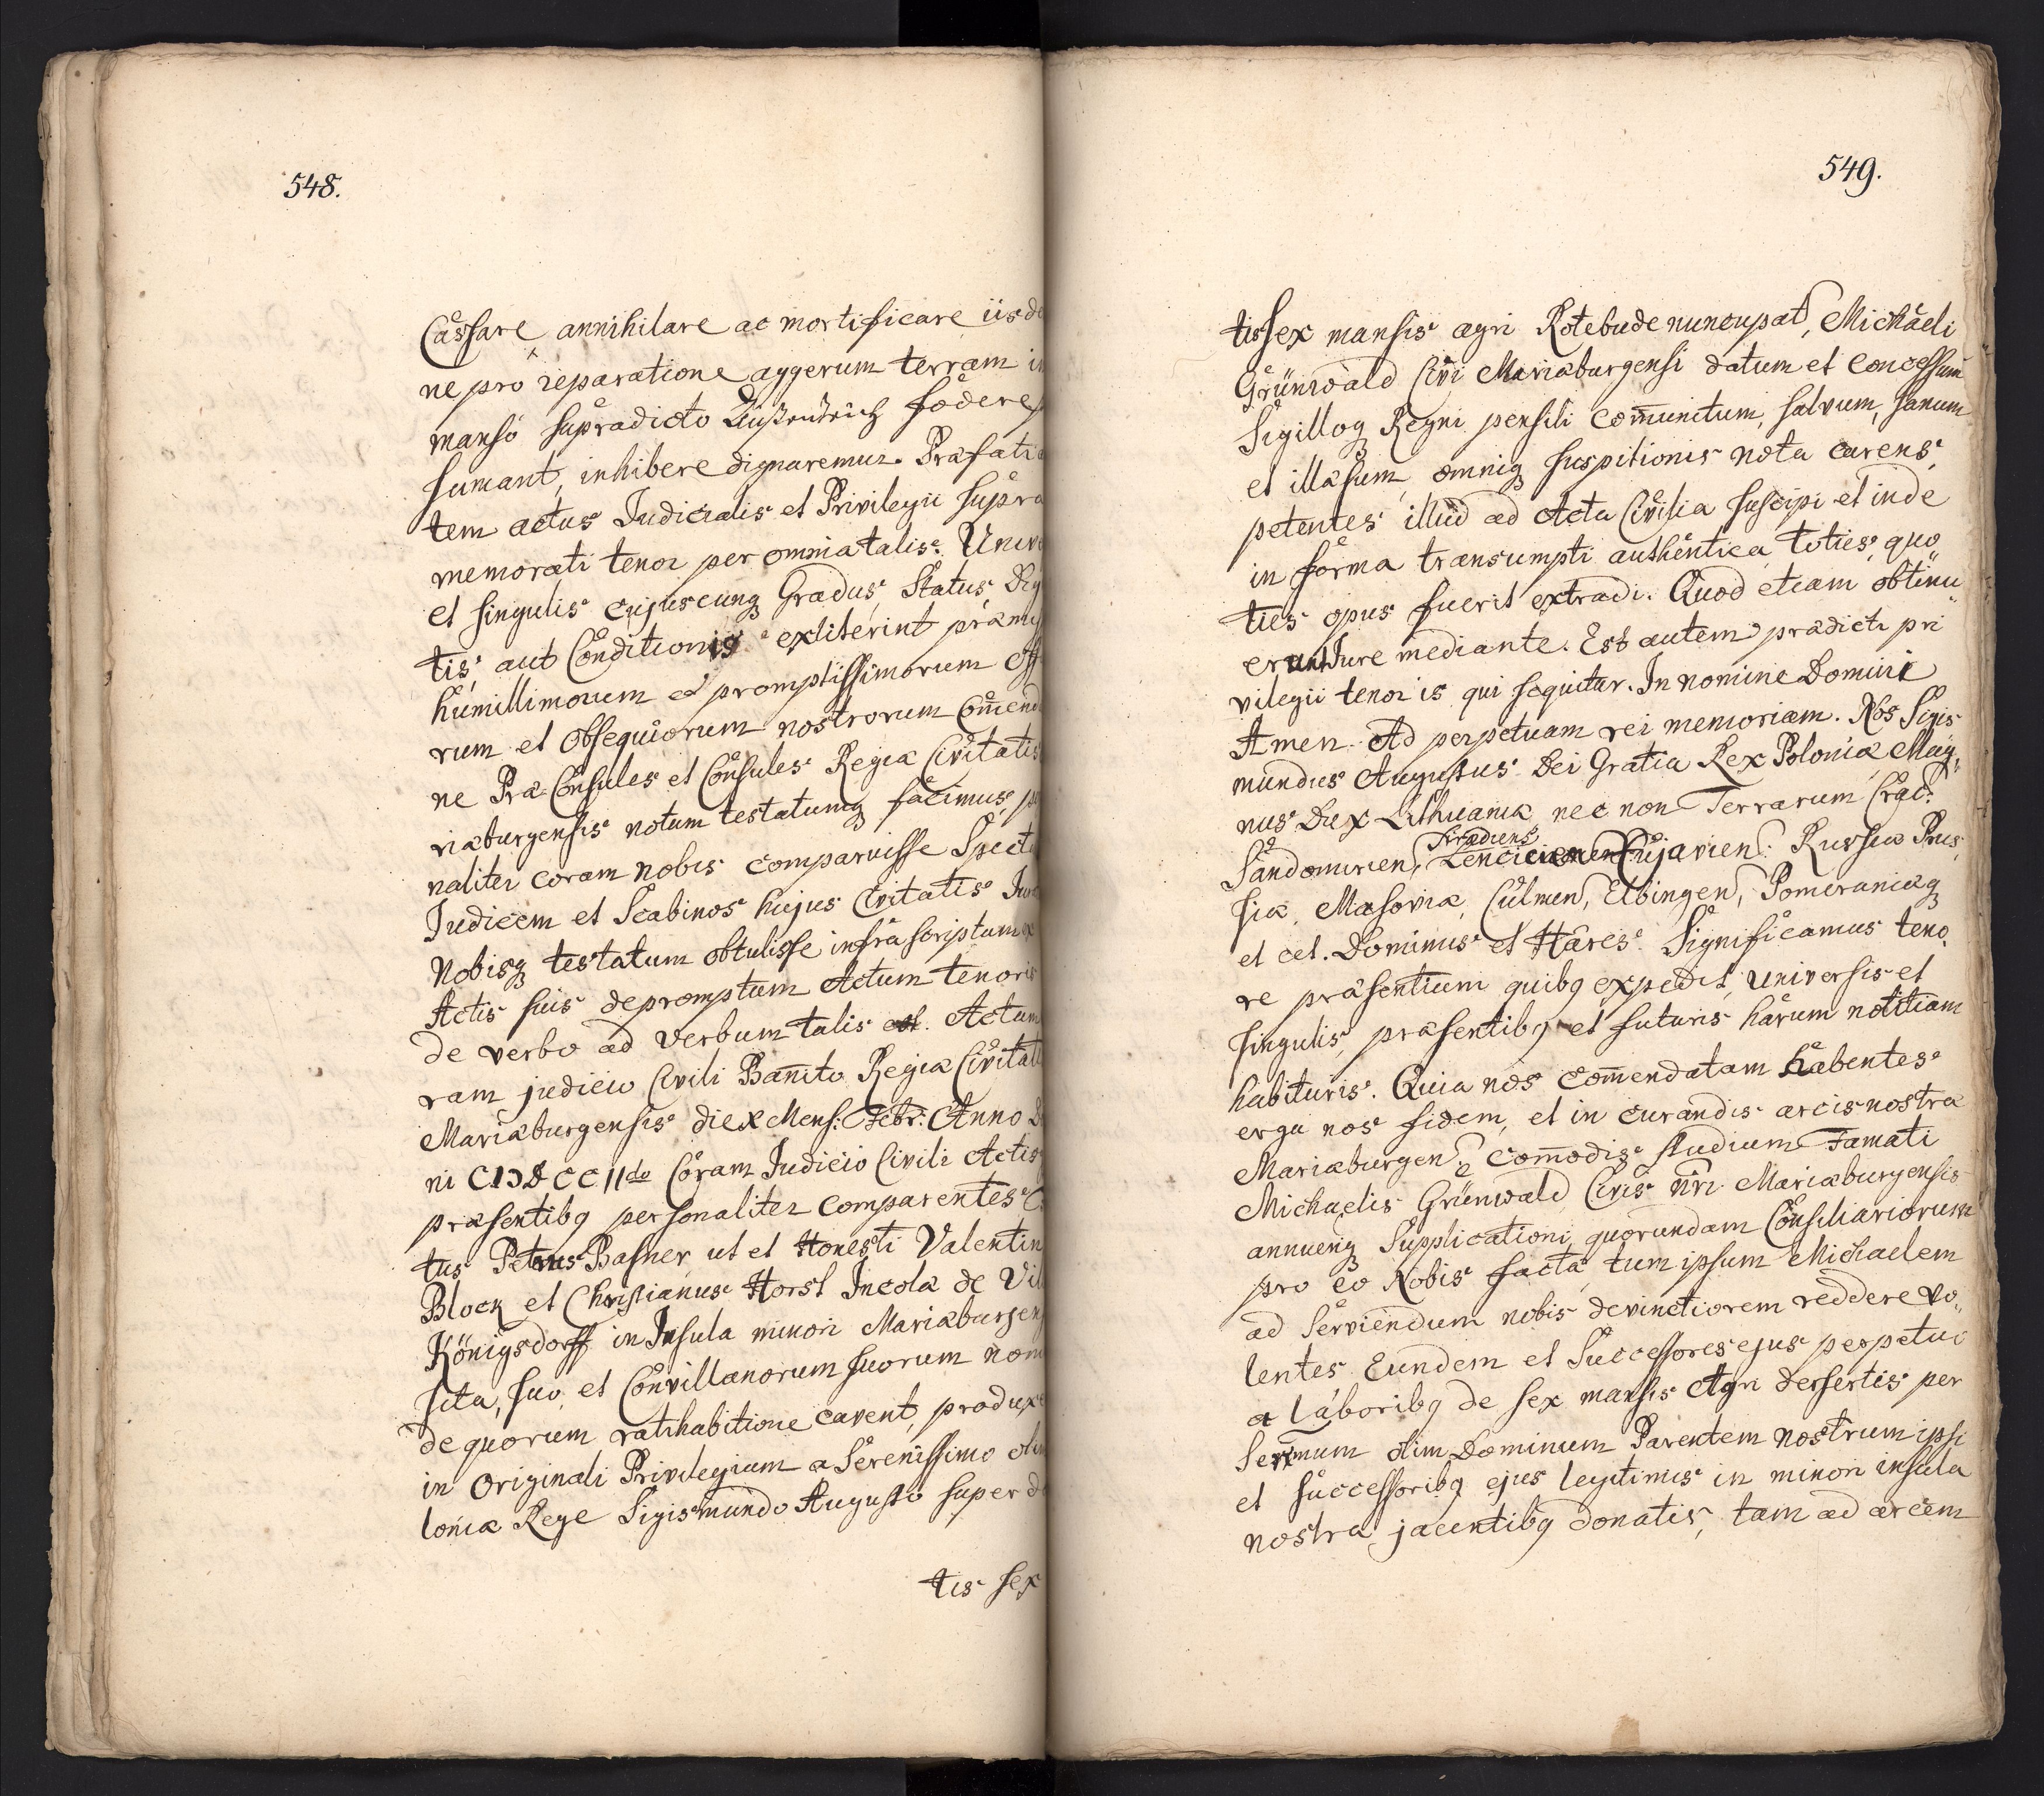 548.
Cassare annihilare ac mortificare iisde
ne pro reparatione aggerum terram in
manso supradicto fodere
sumant, inhibere dignaremur. Præfati a
tem actus Judicialis et Privilegii supra
memorati tenor per omnia talis. Unive
et singulis cujuscunq Gradus, Status, Dig
tis, aut Conditionis extiterint præmis
humillimorum et promptissimorum Off
rum et Obsequiorum nostrorum Com̄end
ne Præ-Consules et Consules Regiæ Civitatis
riæburgensis notum testatumq facimus, p
naliter coram nobis comparuisse Specta
Judicem et Scabinos hujus Civitatis Jur
Nobisq testatum obtulisse infra scriptum ex
Actis suis depromptum Actum tenoris
de verbo ad verbum talis est. Actum
ram judicio Civili Ban̄ito Regiæ Civitat
Mariæburgensis die X Mens: Febr: Anno D
ni CIƆDCCIIdo Coram Judicio Civili Actis
præsentibq personaliter comparentes
tus Petrus Basner ut et Honesti Valentin
Block et Christianus Horst Incolæ de Vil
Königsdorff in Insula minori Mariæburgen
sita, suo et Convillanorum suorum nom
de quorum ratihabitione cavent, produx
in Originali Privilegium a Serenissimo oli
loniæ Rege Sigismundo Augusto super de
tis sex
549.
tis sex mansis agri Rotebude nuncupat, Michaeli
Grünwald Civi Mariæburgensi datum et concessum
Sigilloq Regni pensili com̄unitum, salvum, sanum
et illæsum, omniq suspitionis nota carens,
petentes illud ad Acta Civilia suscipi et inde
in forma transumpti authentica, toties, quo
ties opus fuerit extradi. Quod etiam obtinu
erunt Jure mediante. Est autem prædicti pri
vilegii tenor is qui sequitur. In nomine Domini
Amen. Ad perpetuam rei memoriam. Nos Sigis
mundus Augustus Dei Gratia Rex Poloniæ Mag
nus Dux Lithuaniæ, nec non Terrarum Crac:
Siradiens
Sandomirien, Lencicien Cujavien. Russiæ Prus
siæ, Masoviæ, Culmen, Elbingen, Pomeraniæq
et cet. Dominus et Hæres. Significamus teno
re præsentium quibq expedit, universis et
singulis, præsentibq et futuris harum notitiam
habituris. Quia nos com̄endatam habentes
erga nos fidem, et in curandis arcis nostræ
Mariæburgen com̄odis studium Famati
Michaelis Grünwald Civis n̄ri Mariæburgensis
annuenq Supplicationi quorundam Consiliariorum
pro eo Nobis factæ, tum ipsum Michaelem
ad Serviendum nobis devinctiorem reddere vo
lentes Eundem et Successores ejus perpetuo
a laboribq de sex mansis Agri desertis per
Sermum olim Dominum Parentem nostrum ipsi
et successoribq ejus legitimis in minori insula
nostra jacentibq donatis, tam ad arcem